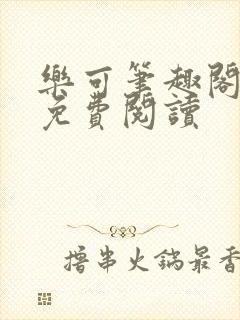 樂可筆趣閣
免費閱讀
擼串火鍋最香